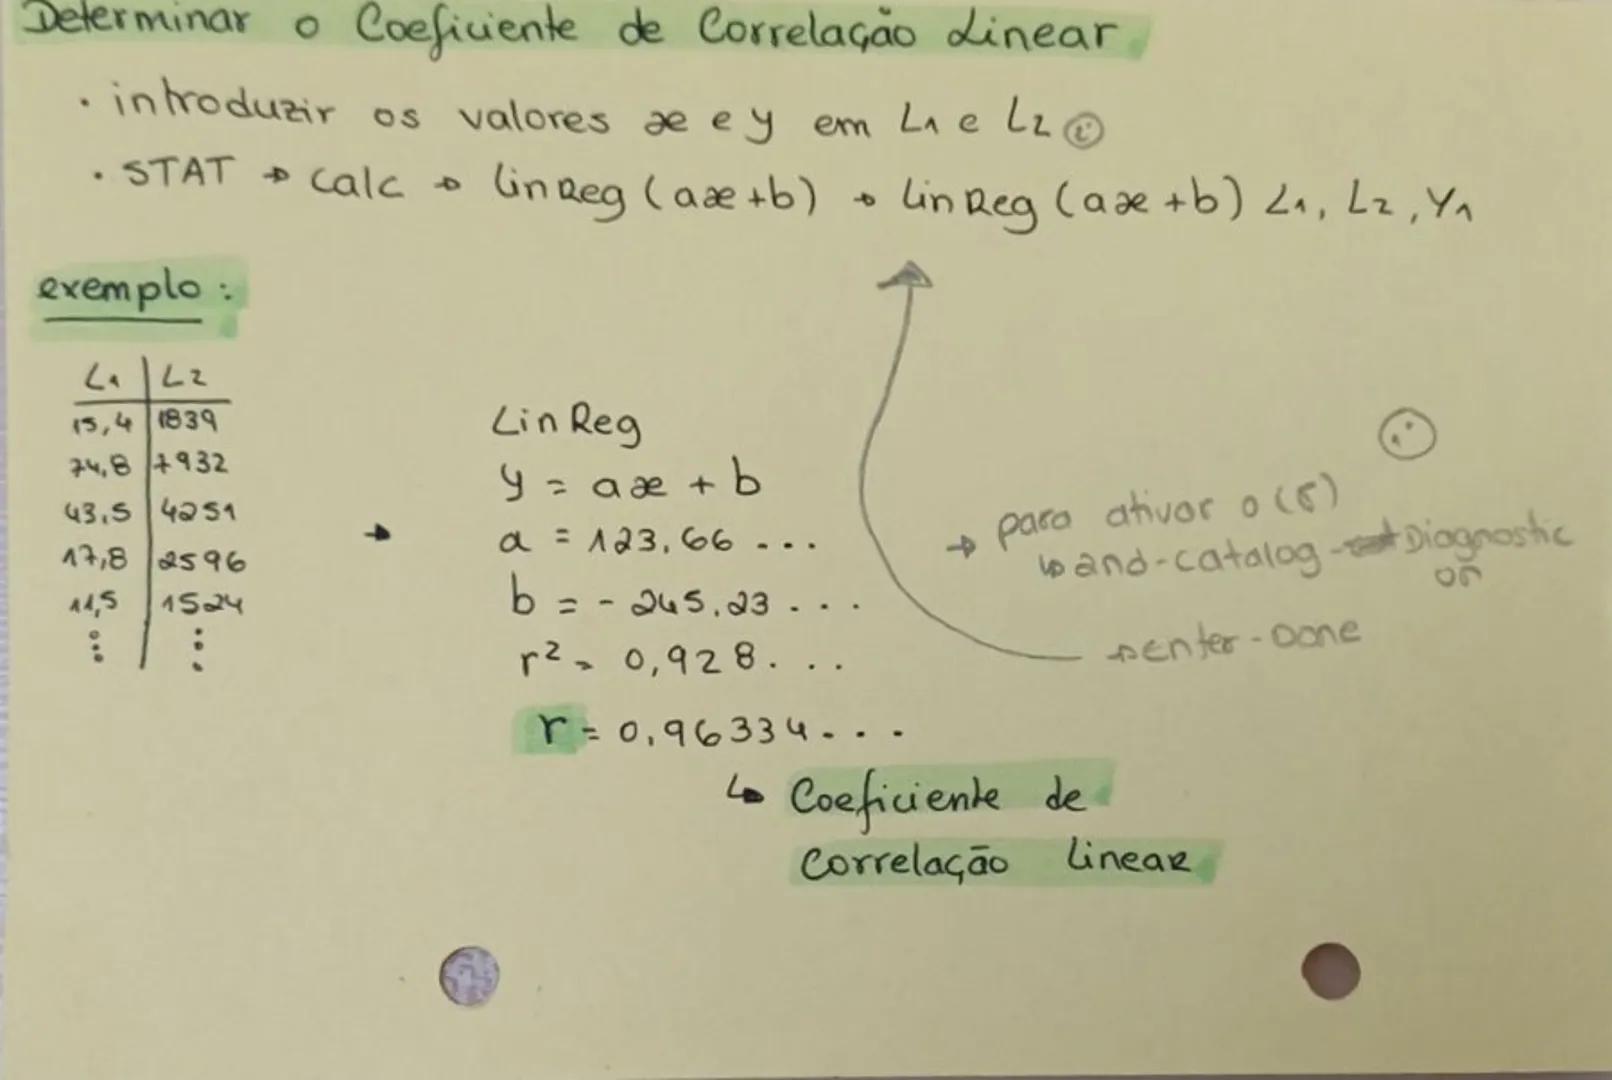 Determinar o Coeficiente de Correlação Linear
· introduzir os valores x e y em L1 e L2
· STAT → calc → LinReg (ax+b) → LinReg (ax+b) L1, L2, Y1
exemplo:
L1 | L2
15,4 | 1839
74,8 | 7932
43,5 | 4251
17,8 | 2596
11,5 | 1524
⋮ | ⋮
→
LinReg
y = ax + b
a = 123,66 ...
b = - 245,23 ...
r² = 0,928...
r = 0,96334...
↳ Coeficiente de
Correlação Linear
→ para ativar o (r)
↳ 2nd-catalog - Diagnostic
on
→ enter - Done